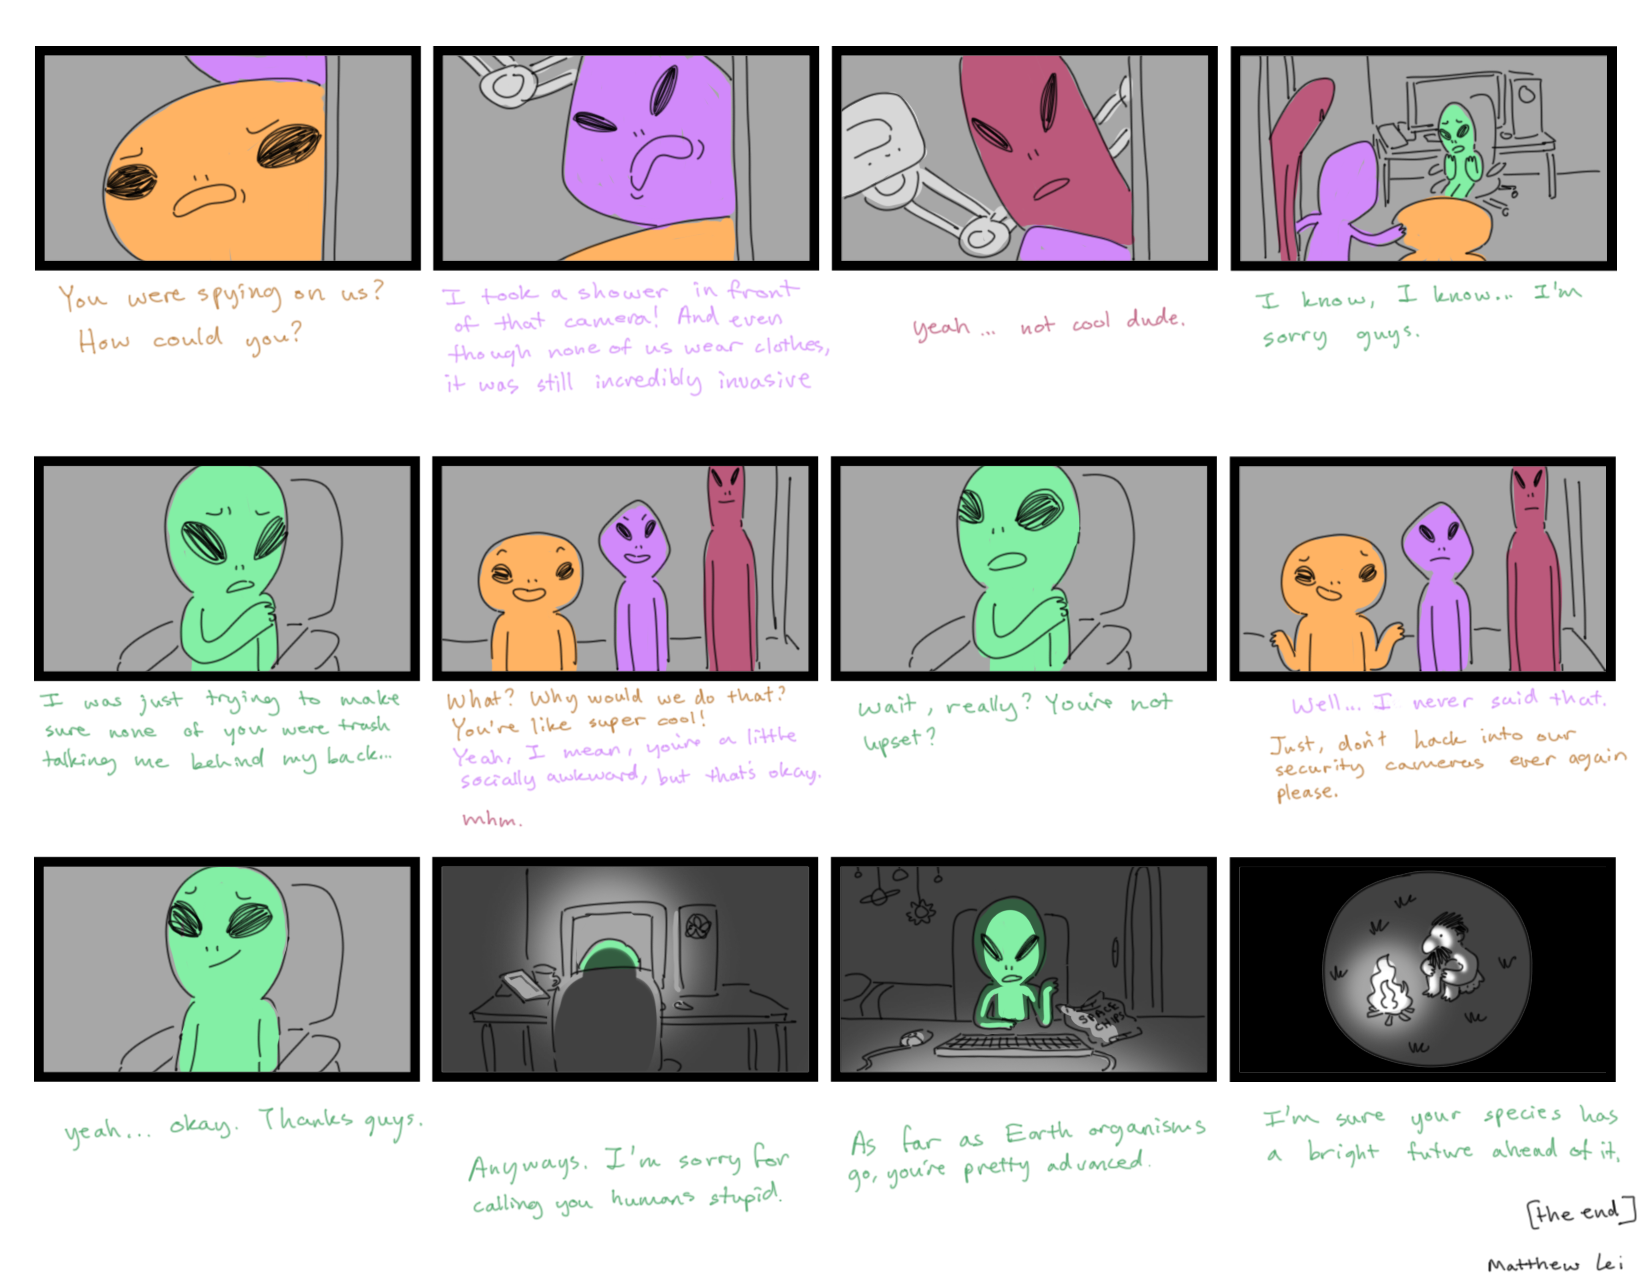 You were spying on us?
How could you?
I took a shower in front
of that camera! And even
though none of us wear clothes,
it was still incredibly invasive
yeah... not cool dude.
I know, I know... I'm
sorry guys.
I was just trying to make
sure none of you were trash
talking me behind my back...
What? Why would we do that?
You're like super cool!
Yeah, I mean, you're a little
socially awkward, but that's okay.
mhm.
wait, really? You're not
upset?
Well... I never said that.
Just, don't hack into our
security cameras ever again
please.
yeah... okay. Thanks guys.
Anyways. I'm sorry for
calling you humans stupid.
SPACE
CHIPS
As far as Earth organisms
go, you're pretty advanced.
I'm sure your species has
a bright future ahead of it.
[the end]
Matthew Lei